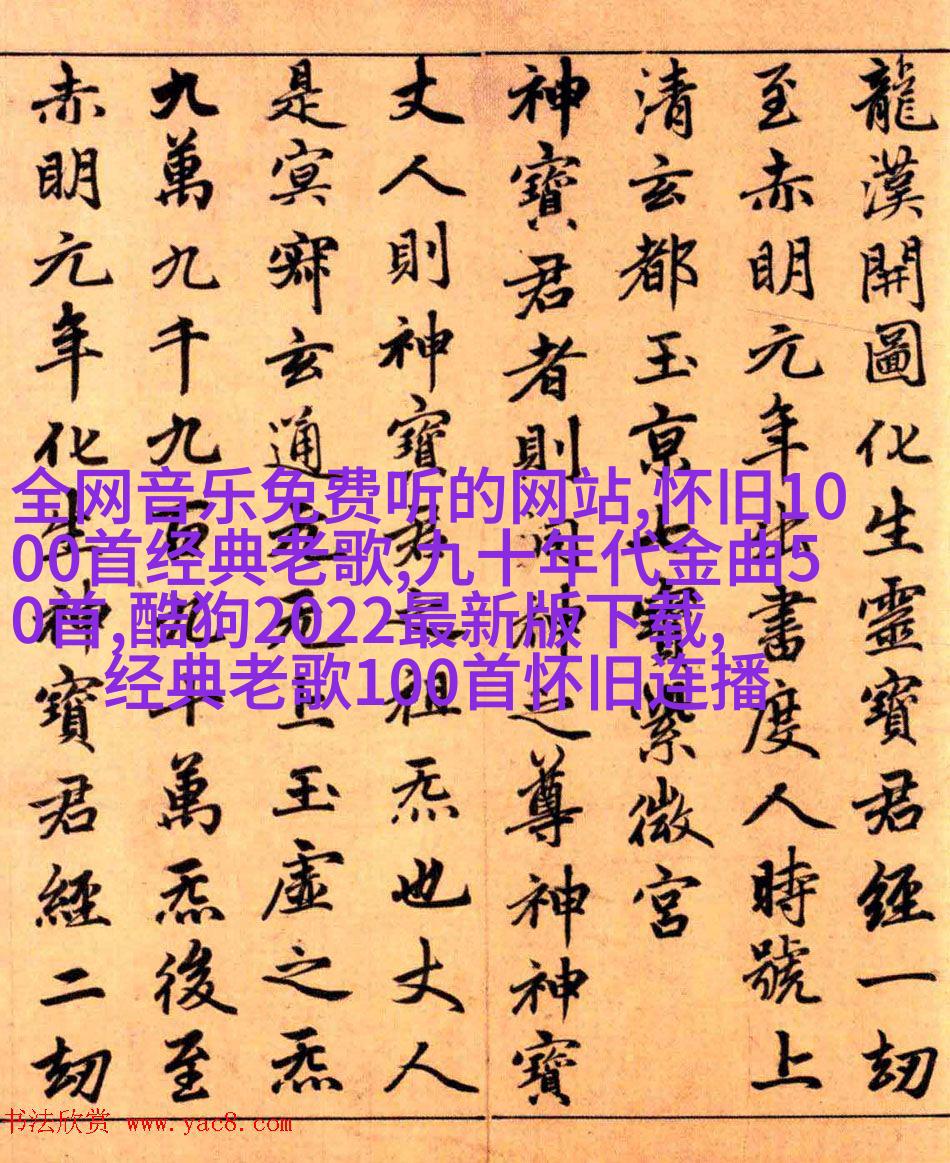 龍漢開圖化生靈寶君經一刼
至赤明元年出書度人時號上
清玄都玉京七寶紫微宮
神寶君者則洞神之尊神神寶
丈人則神寶君祖炁也丈人
是冥寂玄通元无上玉虛之炁
九萬九千九百九十萬炁後至
赤明元年化生神寶君經二刼
全网音乐免费听的网站,怀旧10
00首经典老歌,九十年代金曲5
0首,酷狗2022最新版下载,
经典老歌100首怀旧连播
书法欣赏 www.yac8.com